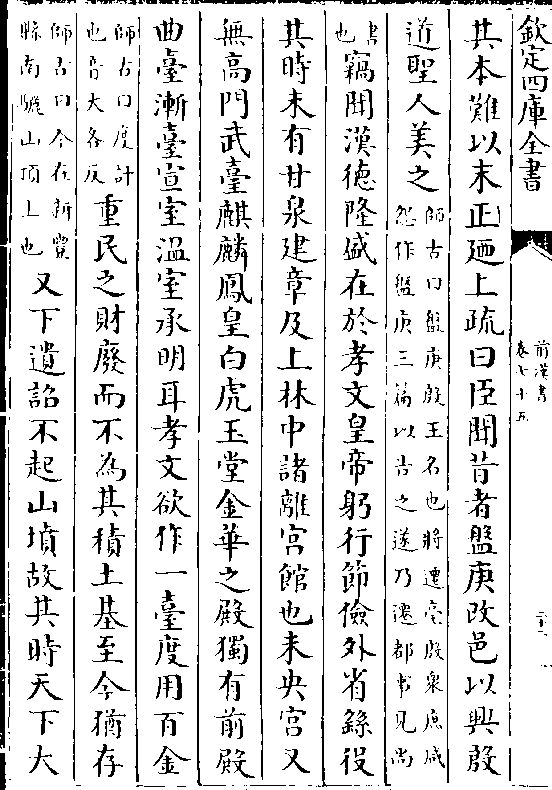 欽定四庫全書
前漢書
卷七十五
其本難以末正廼上疏曰臣聞昔者盤庚改邑以興殷
道聖人美之師古曰盤庚殷王名也將遷亳殷衆庶咸
怨作盤庚三篇以告之遂乃遷都事見尚
書
也竊聞漢德隆盛在於孝文皇帝躬行節儉外省繇役
其時未有甘泉建章及上林中諸離宮館也未央宮又
無高門武臺麒麟鳳皇白虎玉堂金華之殿獨有前殿
曲臺漸臺宣室溫室承明耳孝文欲作一臺度用百金
師古曰度計
也音大各反重民之財廢而不為其積土基至今猶存
師古曰今在新豐
縣南驪山頂上也又下遺詔不起山墳故其時天下大